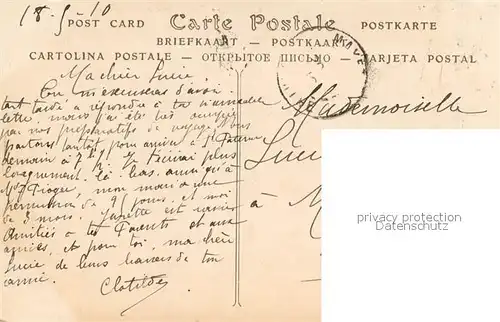 18-5-10
POST CARD Carte Postale POSTKARTE
BRIEFKAART - POSTKAART
CARTOLINA POSTALE - ОТКРЫТОЕ ПИСЬМО - TARJETA POSTAL
Ma chère Lucie,
Tu m'excuseras d'avoir
tant tardé à répondre à ta si aimable
lettre, mais j'ai été très occupée
par nos préparatifs de voyage, nous
partons tantôt pour arriver à St
demain à 7 h ½. Je t'écrirai plus
longuement là-bas, ainsi qu'à
mon mari a une
permission de jours, et moi
de 3 mois. est
Amitiés à tes Parents et aux
amies, et pour toi, ma chère
Lucie de bons baisers de ton
amie.
Clotilde
Mademoiselle
Luci
à M
privacy protection
Datenschutz